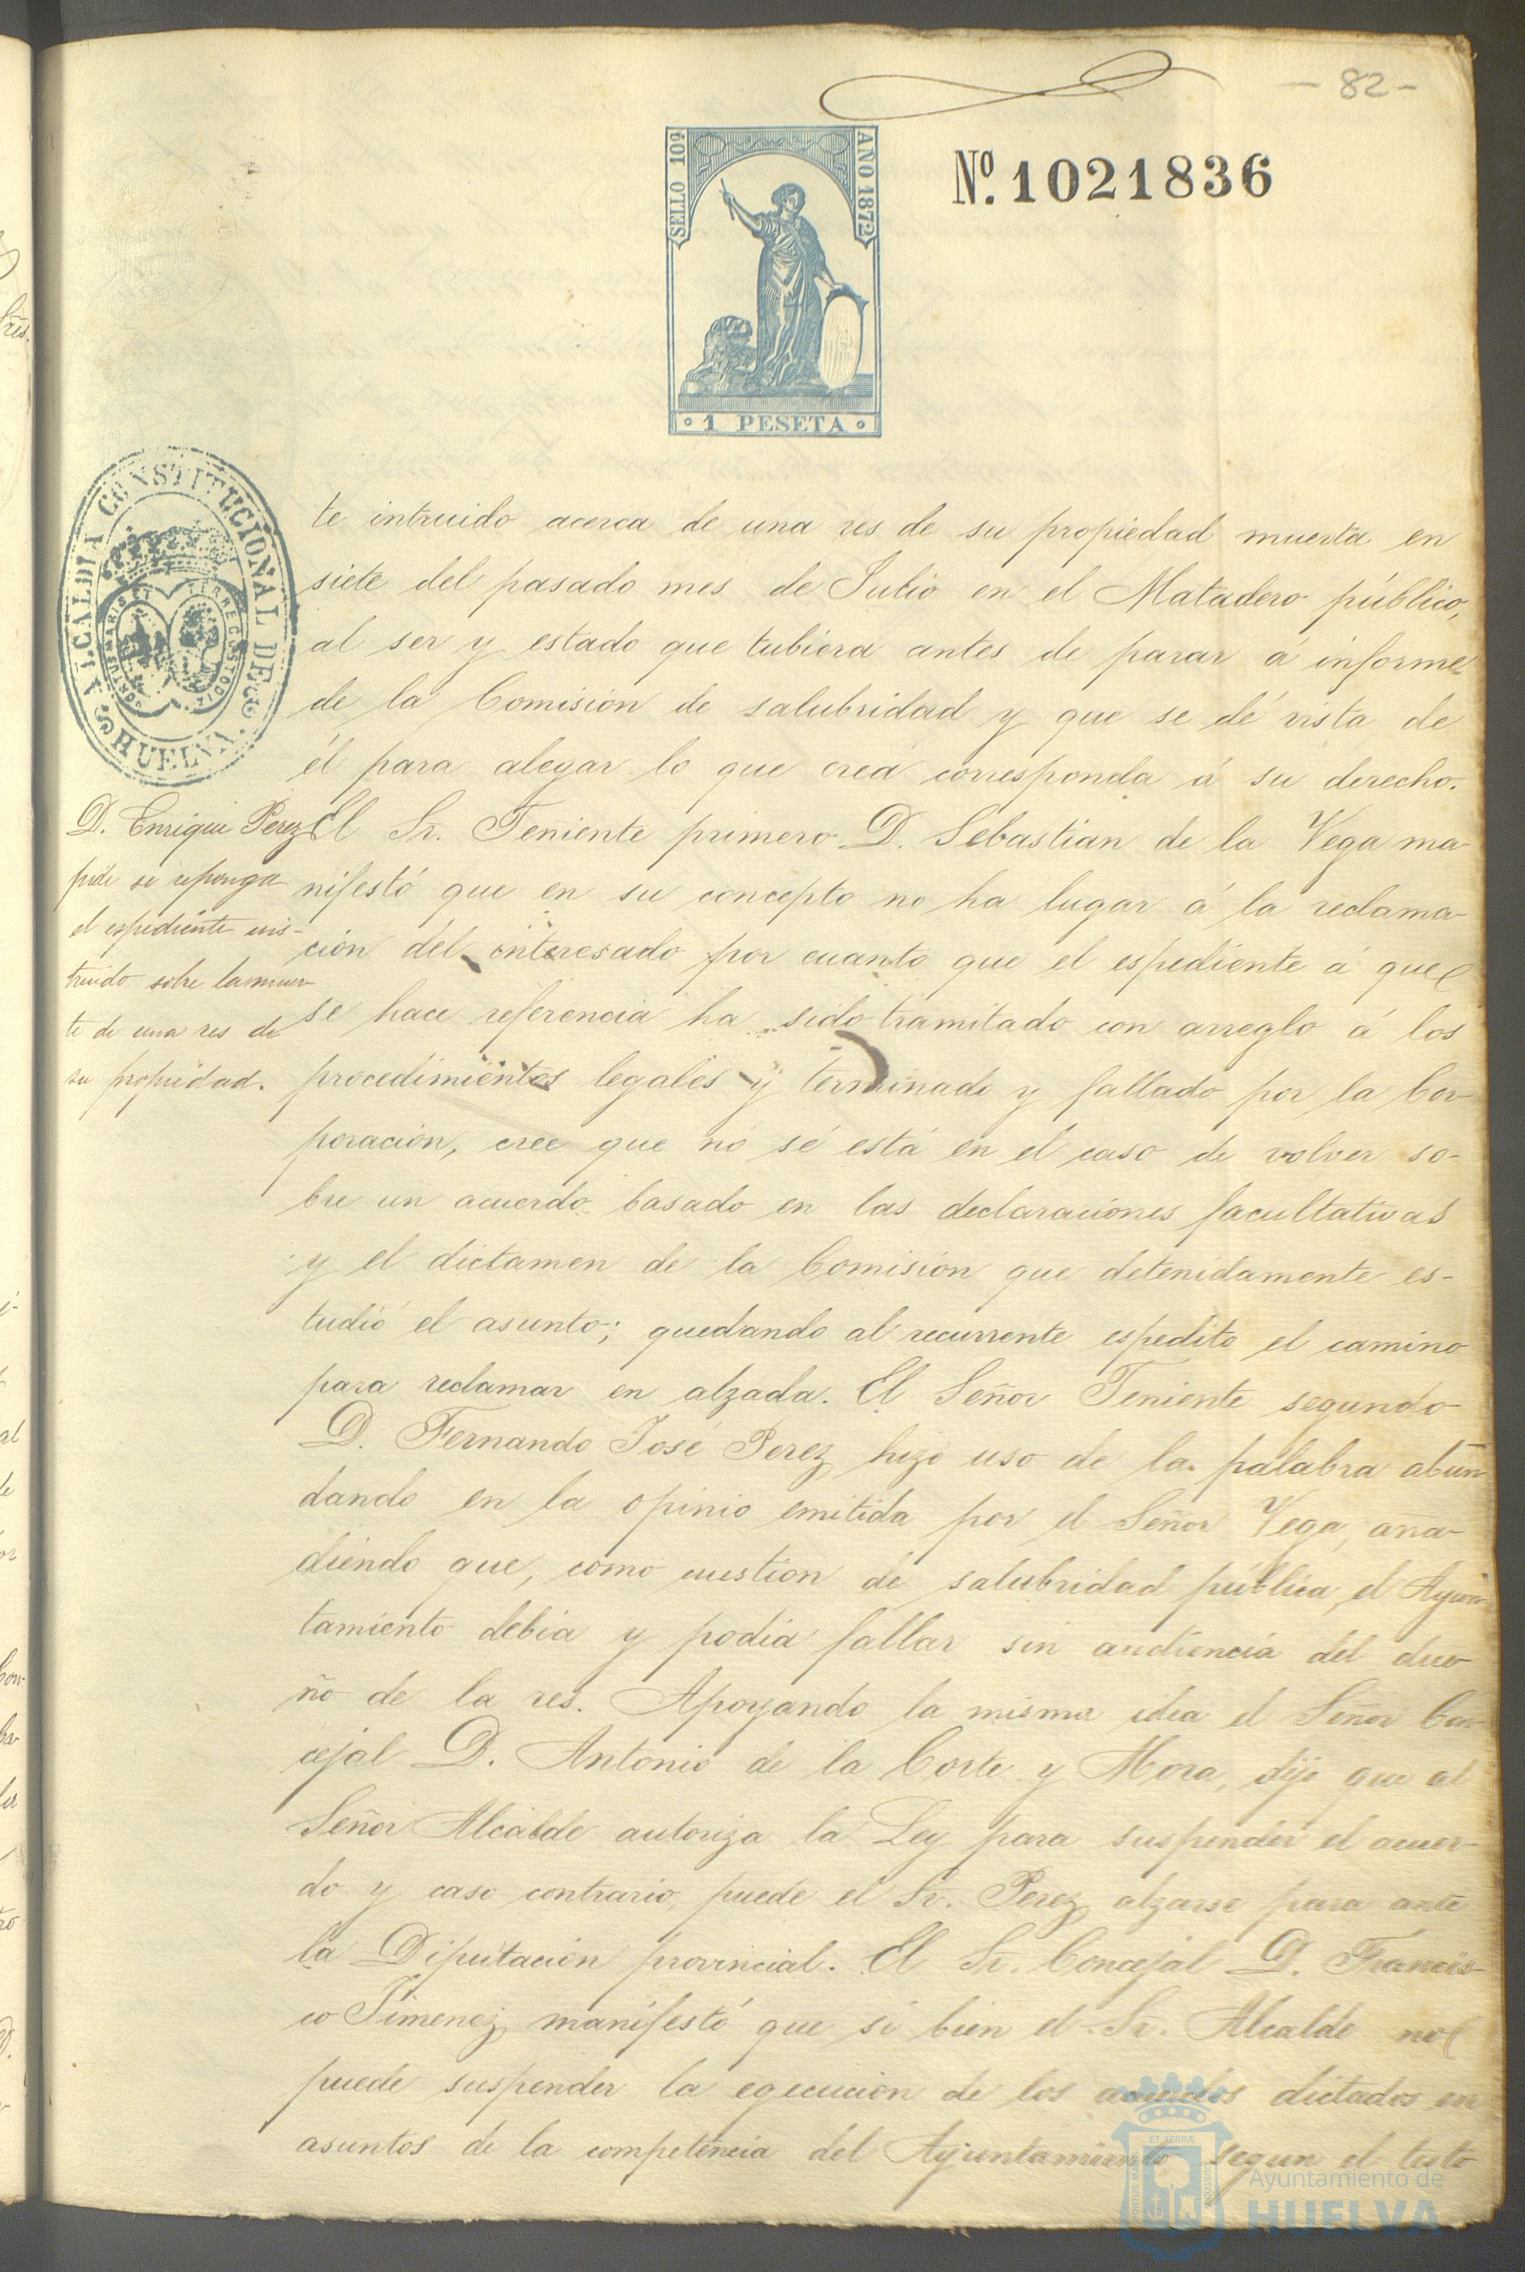 - 82 -
SELLO 10º
AÑO 1872
Nº. 1021836
1 PESETA
ALCALDIA CONSTITUCIONAL DE
HUELVA
PORTUS MARIS ET TERRE CUSTODIA
te intruido acerca de una res de su propiedad muerta en
siete del pasado mes de Julio en el Matadero público,
al ser y estado que tubiera antes de parar á informe
de la Comision de salubridad y que se dé vista de
él para alegar lo que crea corresponda á su derecho.
D. Enrique Perez
pide se reponga
el espediente ins-
truido sobre la muer
te de una res de
su propiedad.
El Sr. Teniente primero D. Sebastian de la Vega ma-
nifestó que en su concepto no ha lugar á la reclama-
cion del interesado por cuanto que el espediente á que
se hace referencia ha sido tramitado con arreglo á los
procedimientos legales y terminado y fallado por la Cor-
poración, cree que no se está en el caso de volver so-
bre un acuerdo basado en las declaraciones facultativas
y el dictamen de la Comision que detenidamente es-
tudió el asunto; quedando al recurrente espedito el camino
para reclamar en alzada. El Señor Teniente segundo
D. Fernando José Perez hizo uso de la palabra abun
dando en la opinio emitida por el Señor Vega, aña-
diendo que, como cuestion de salubridad pública, el Ayun
tamiento debia y podia fallar sin audiencia del due
ño de la res. Apoyando la misma idea el Señor Con
cejal D. Antonio de la Corte y Mora, dijo que al
Señor Alcalde autoriza la Ley para suspender el acuer-
do y caso contrario, puede el Sr. Perez alzarse para ante
la Diputacion provincial. El Sr. Concejal D. Francis-
co Jimenez manifestó que si bien el Sr. Alcalde no
puede suspender la egecucion de los acuerdos dictados en
asuntos de la competencia del Ayuntamiento segun el testo
Ayuntamiento de
HUELVA